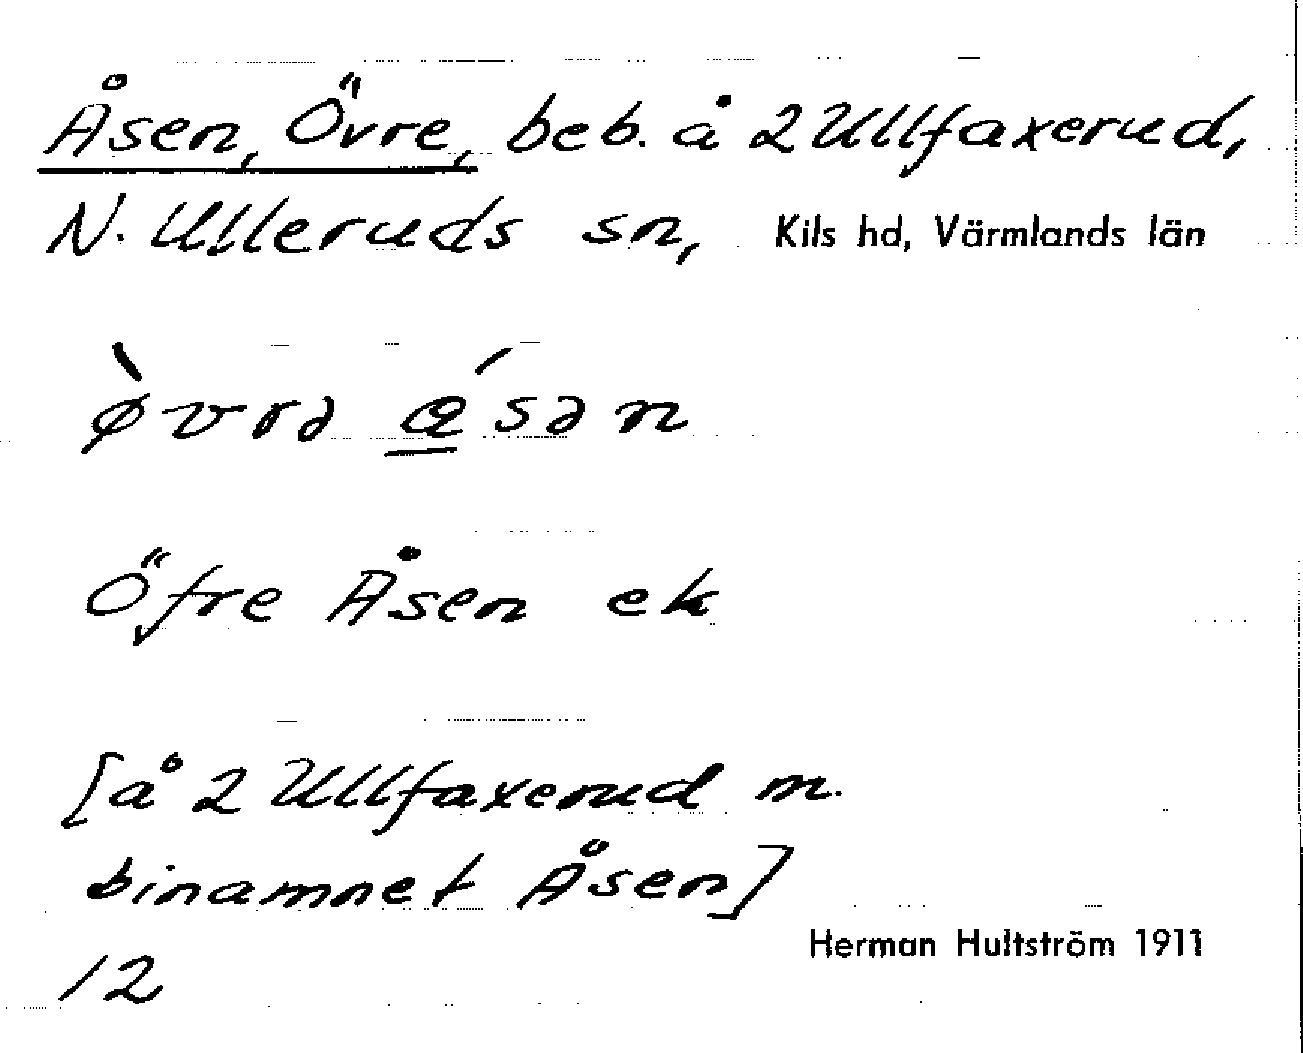 Åsen, Övre, beb. å 2 Ullfaxerud,
N. Ulleruds sn, Kils hd, Värmlands län
ø̀vrə ásən
Öfre Åsen ek
[å 2 Ullfaxerud m.
binamnet Åsen]
Herman Hultström 1911
12